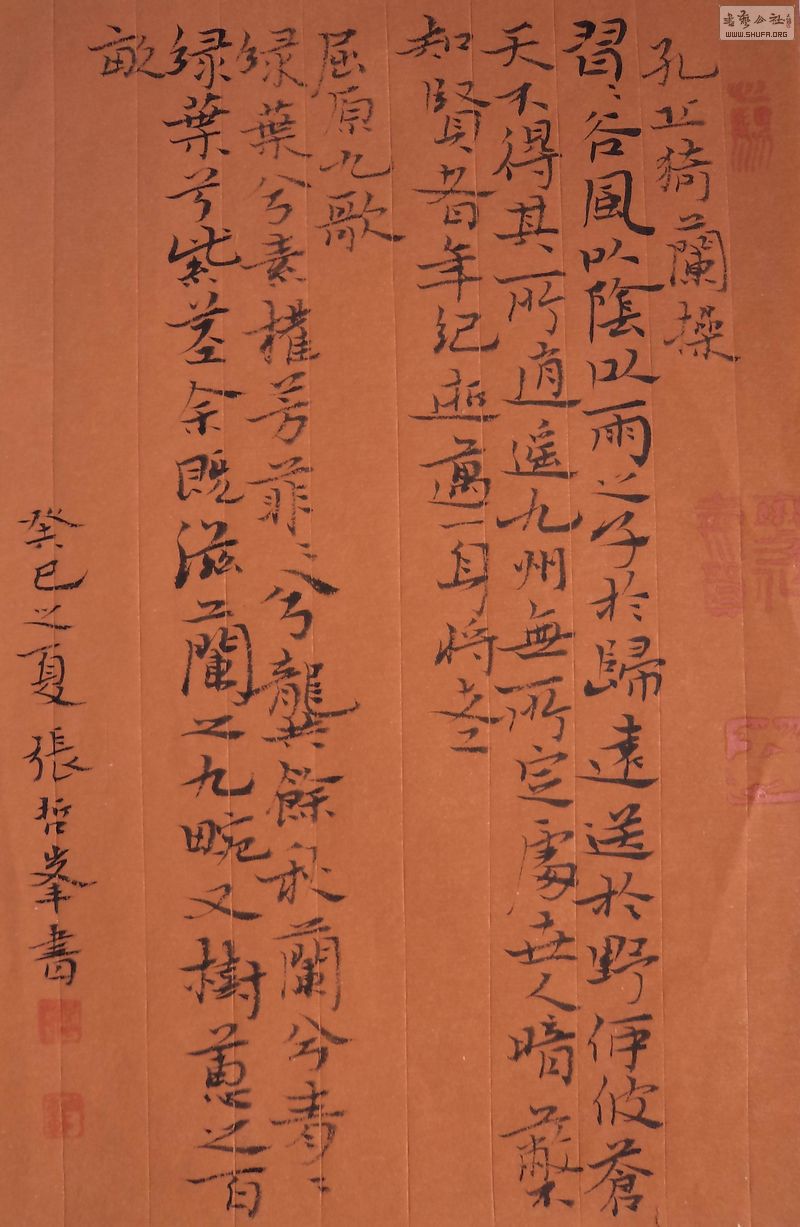 孔丘猗蘭操
習〻谷風以陰以雨之子於歸遠送於野何彼蒼
天不得其所逍遥九州無所定處世人暗蔽不
知賢者年紀逝邁一身將老
屈原九歌
绿葉兮素權芳菲〻兮龔餘秋蘭兮青〻
绿葉兮紫莖余既滋蘭之九畹又樹蕙之百
畝
癸巳之夏張哲峯書
書藝公社
WWW.SHUFA.ORG